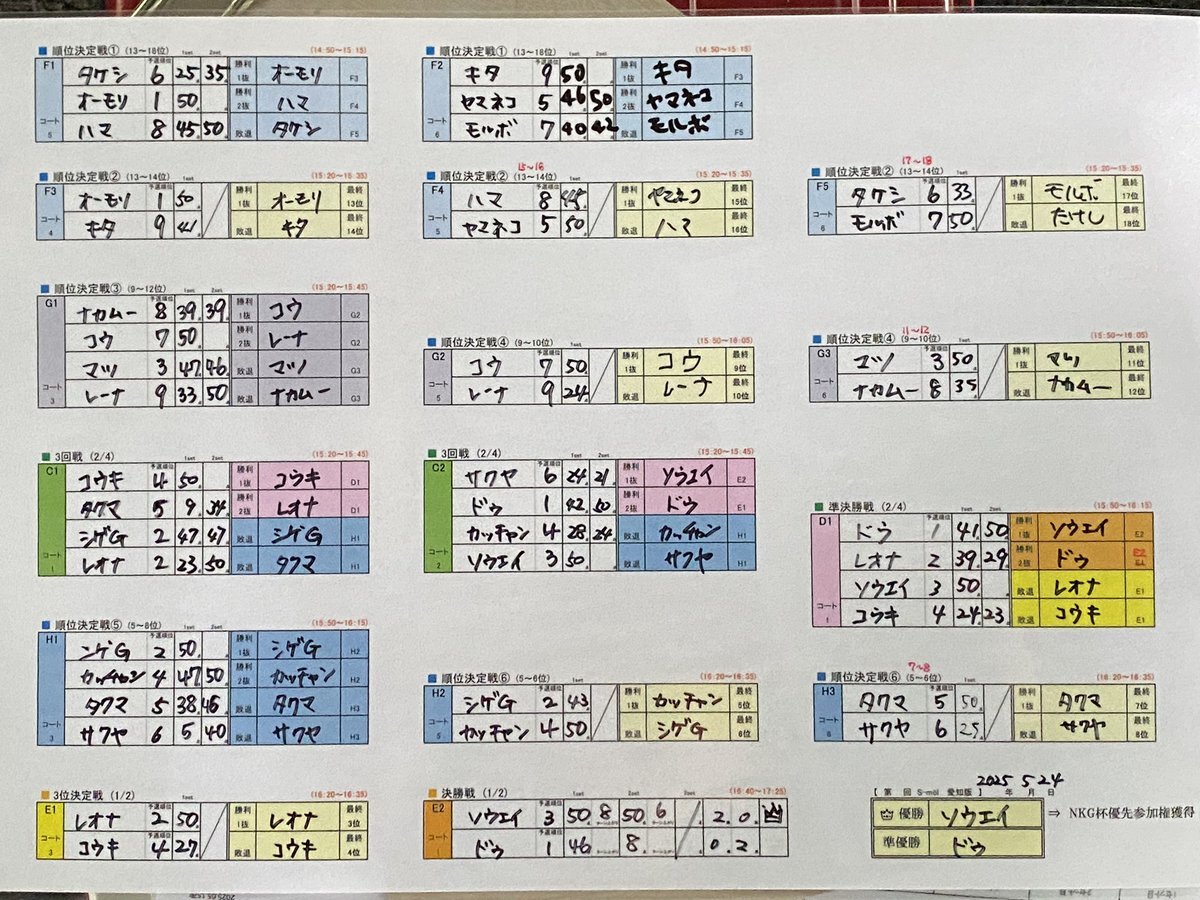 順位決定戦① (13~18位) 1set 2set (14:50~15:15)
F1 タケシ 6 25 35 勝利 1抜 オーモリ F3
オーモリ 1 50 勝利 2抜 ハマ F4
コート 5 ハマ 8 45 50 敗退 タケシ F5
順位決定戦① (13~18位) 1set 2set (14:50~15:15)
F2 キタ 9 50 勝利 1抜 キタ F3
ヤマネコ 5 46 50 勝利 2抜 ヤマネコ F4
コート 6 モルボ 7 40 42 敗退 モルボ F5
順位決定戦② (13~14位) (15:20~15:35)
予選順位 1set
F3 オーモリ 1 50 勝利 1抜 オーモリ 最終 13位
コート 4 キタ 9 41 敗退 キタ 最終 14位
15~16
順位決定戦② (13~14位) (15:20~15:35)
予選順位 1set
F4 ハマ 8 45 勝利 1抜 ヤマネコ 最終 15位
コート 5 ヤマネコ 5 50 敗退 ハマ 最終 16位
17~18
順位決定戦② (13~14位) (15:20~15:35)
予選順位 1set
F5 タケシ 6 33 勝利 1抜 モルボ 最終 17位
コート 6 モルボ 7 50 敗退 たけし 最終 18位
順位決定戦③ (9~12位) 1set 2set (15:20~15:45)
予選順位
G1 ナカムー 8 39 39 勝利 1抜 コウ G2
コウ 7 50 勝利 2抜 レーナ G2
マツノ 3 47 46 敗退 マツノ G3
コート 3 レーナ 9 33 50 敗退 ナカムー G3
順位決定戦④ (9~10位) 1set (15:50~16:05)
予選順位
G2 コウ 7 50 勝利 1抜 コウ 最終 9位
コート 5 レーナ 9 24 敗退 レーナ 最終 10位
11~12
順位決定戦④ (9~10位) 1set (15:50~16:05)
予選順位
G3 マツノ 3 50 勝利 1抜 マツノ 最終 11位
コート 6 ナカムー 8 35 敗退 ナカムー 最終 12位
3回戦 (2/4) 1set 2set (15:20~15:45)
予選順位
C1 コウキ 4 50 勝利 1抜 コウキ D1
タクマ 5 9 34 勝利 2抜 レオナ D1
シゲG 2 47 47 敗退 シゲG H1
コート 1 レオナ 2 23 50 敗退 タクマ H1
3回戦 (2/4) 1set 2set (15:20~15:45)
予選順位
C2 サクヤ 6 24 21 勝利 1抜 ソウエイ E2
ドゥ 1 42 50 勝利 2抜 ドゥ E1
カッチャン 4 28 24 敗退 カッチャン H1
コート 2 ソウエイ 3 50 敗退 サクヤ H1
準決勝戦 (2/4) 1set 2set (15:50~16:15)
予選順位
D1 ドゥ 1 41 50 勝利 1抜 ソウエイ E2
レオナ 2 39 29 勝利 2抜 ドゥ E2 E1
ソウエイ 3 50 敗退 レオナ E1
コート 1 コウキ 4 24 23 敗退 コウキ E1
順位決定戦⑤ (5~8位) 1set 2set (15:50~16:15)
予選順位
H1 シゲG 2 50 勝利 1抜 シゲG H2
カッチャン 4 47 50 勝利 2抜 カッチャン H2
タクマ 5 38 46 敗退 タクマ H3
コート 3 サクヤ 6 5 40 敗退 サクヤ H3
順位決定戦⑥ (5~6位) 1set (16:20~16:35)
予選順位
H2 シゲG 2 43 勝利 1抜 カッチャン 最終 5位
コート 5 カッチャン 4 50 敗退 シゲG 最終 6位
7~8
順位決定戦⑥ (5~6位) 1set (16:20~16:35)
予選順位
H3 タクマ 5 50 勝利 1抜 タクマ 最終 7位
コート 6 サクヤ 6 25 敗退 サクヤ 最終 8位
3位決定戦 (1/2) 1set (16:20~16:35)
予選順位
E1 レオナ 2 50 勝利 1抜 レオナ 最終 3位
コート 3 コウキ 4 27 敗退 コウキ 最終 4位
決勝戦 (1/2) 1set 2set (16:40~17:25)
予選順位
E2 ソウエイ 3 50 8 50 6 2. 0.
コート 1 ドゥ 1 46 8 0 2.
2025 5 24
【 第 回 S-möl 愛知版 】 年 月 日
優勝 ソウエイ ⇒ NKG杯優先参加権獲得
準優勝 ドゥ